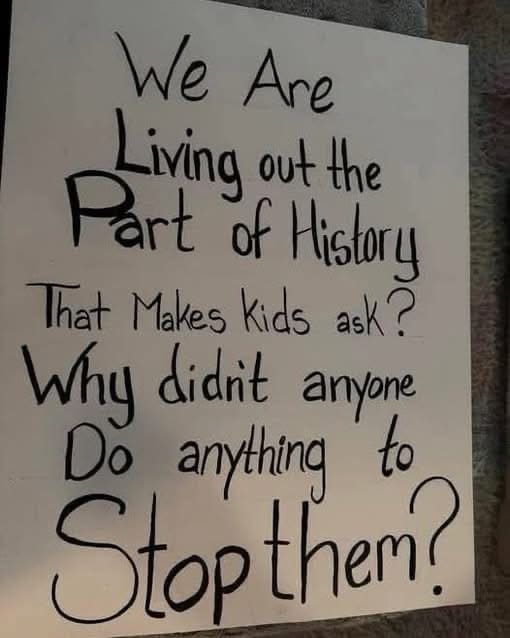 We Are
Living out the
Part of History
That Makes kids ask?
Why didn't anyone
Do anything to
Stop them?